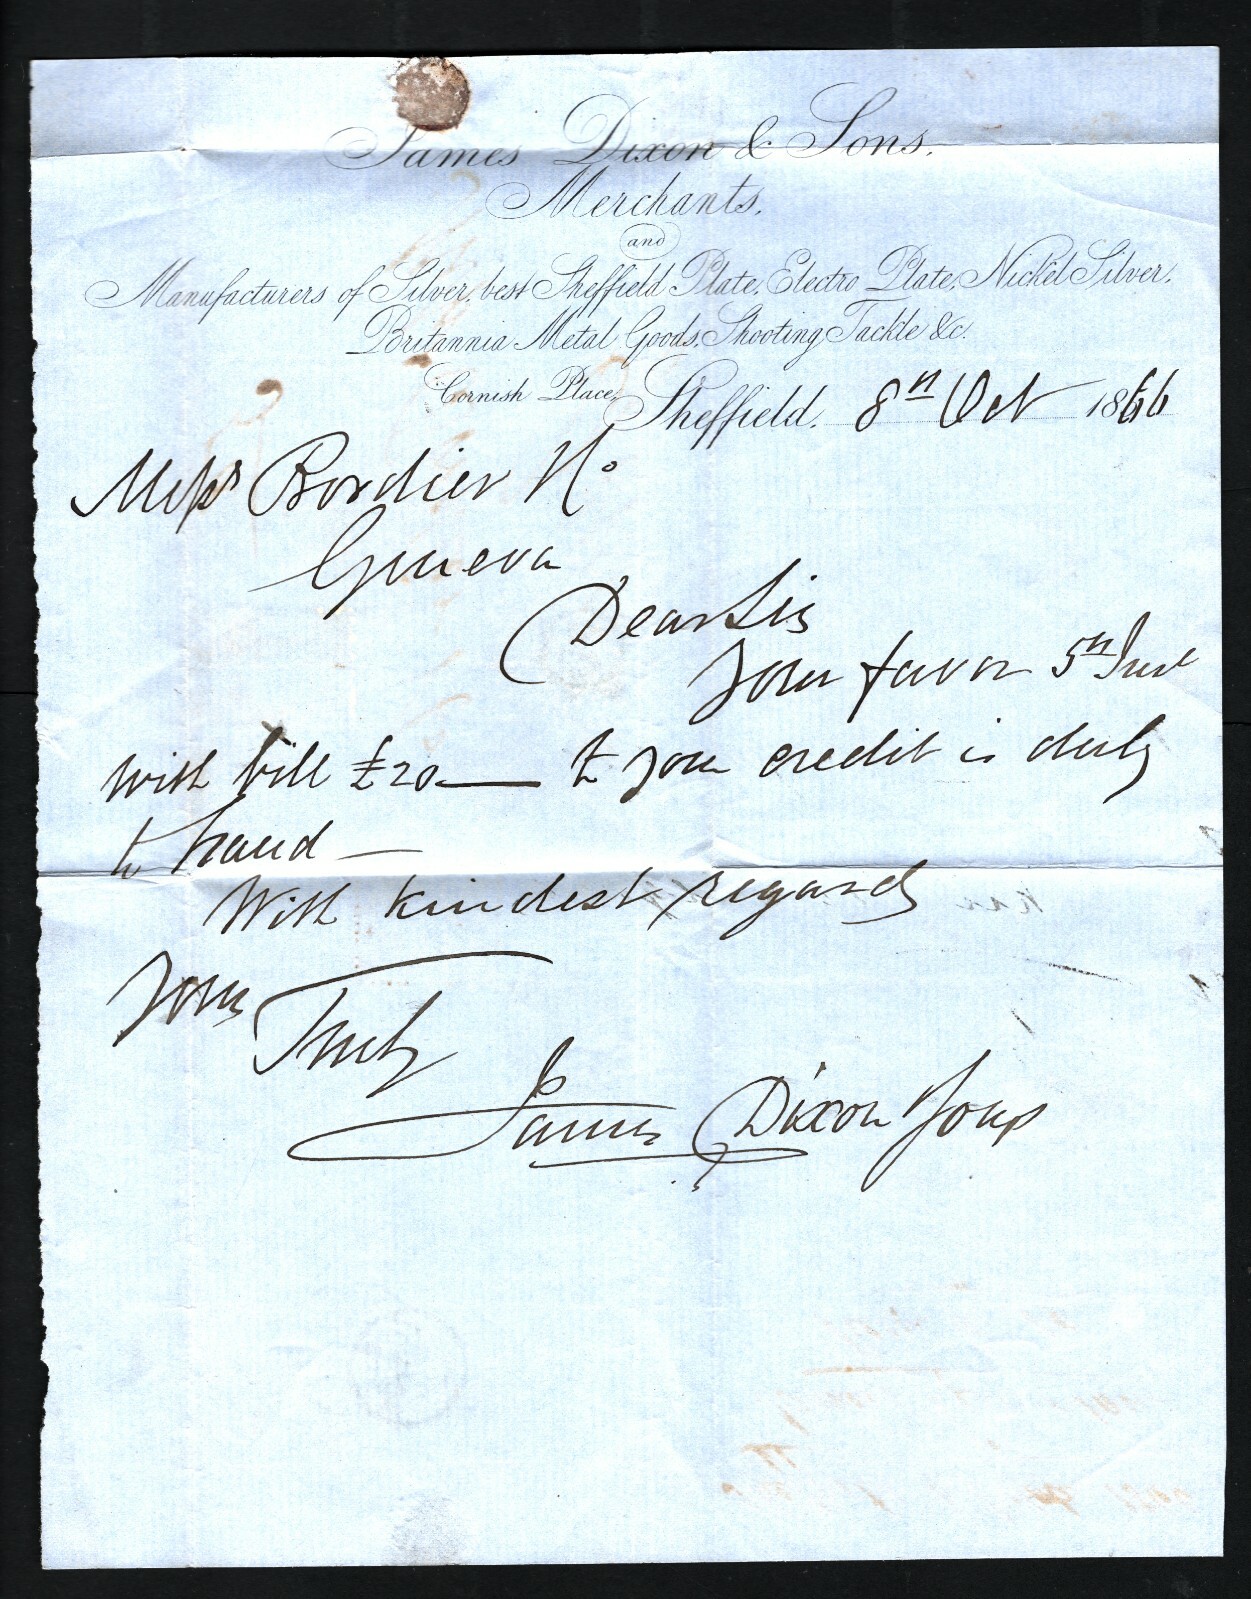 James Dixon & Sons.
Merchants,
and
Manufacturers of Silver, best Sheffield Plate, Electro Plate, Nickel Silver,
Britannia Metal Goods, Shooting Tackle &c.
Cornish Place, Sheffield. 8th Oct 1866
Messrs Bordier & Co
Geneva
Dear Sirs
Your favor 5th Inst
with bill £20 — to your credit is duly
to hand —
With kindest regards
Yours
Truly
James Dixon & Sons